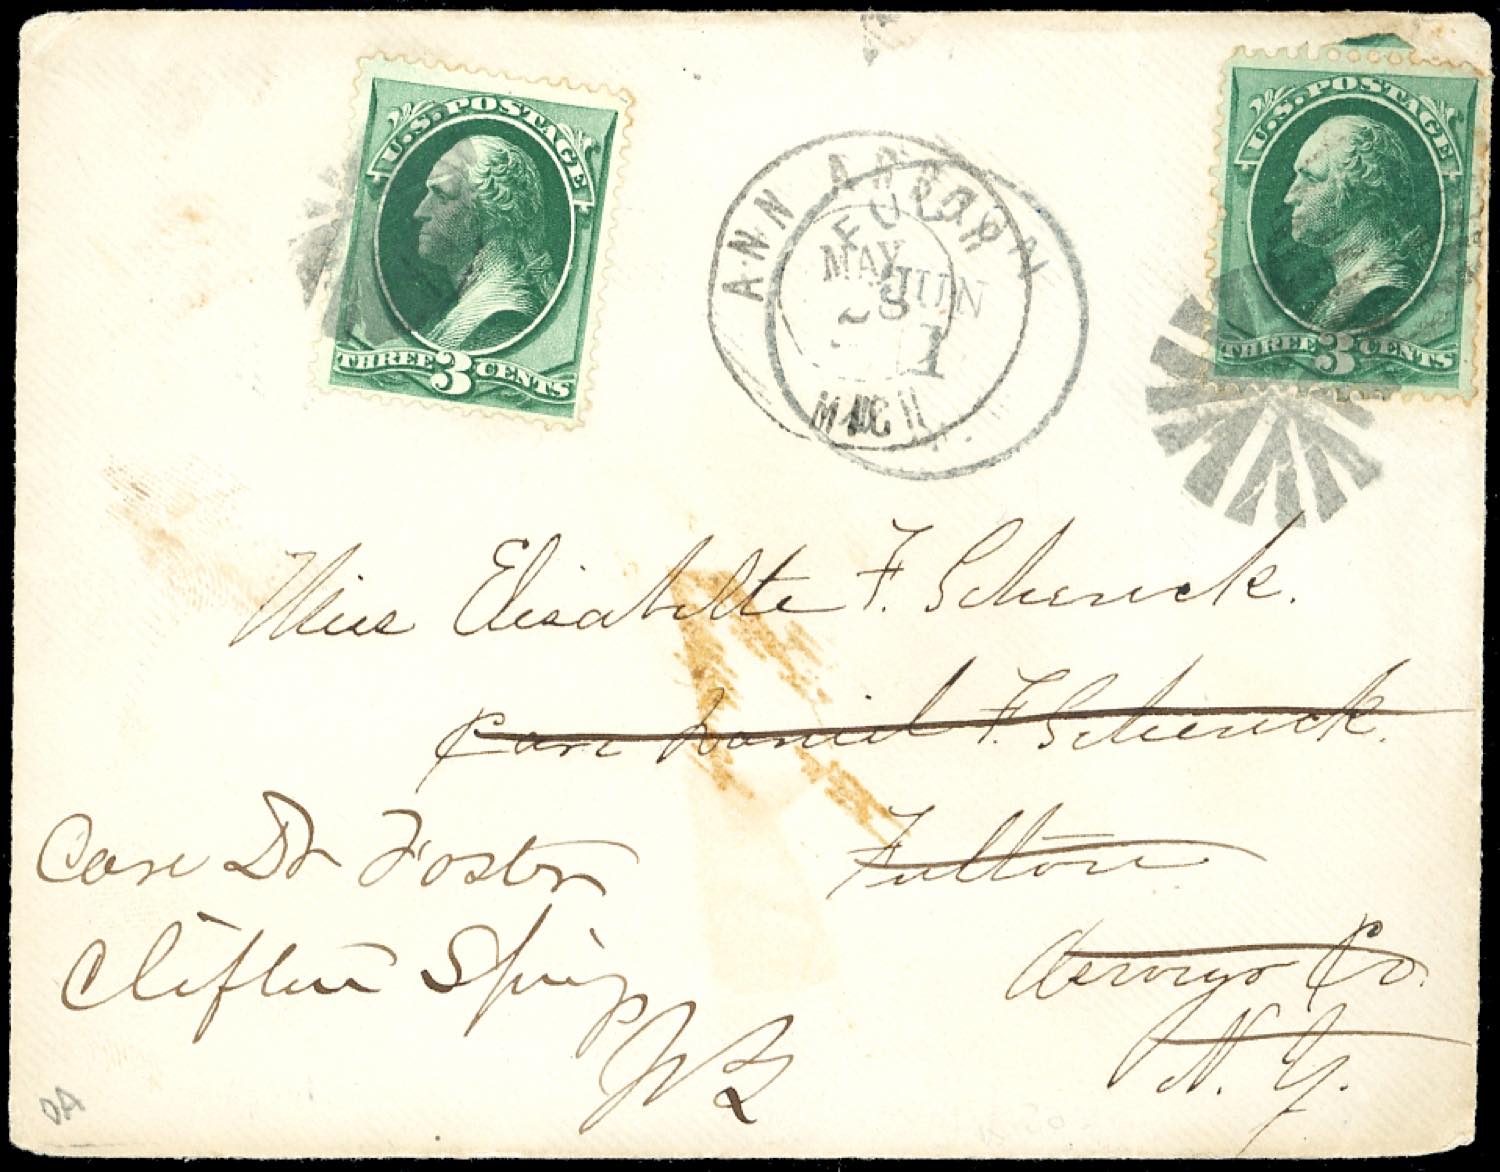 U.S. POSTAGE
THREE 3 CENTS
U.S. POSTAGE
THREE 3 CENTS
ANN ARBOR
MICH
MAY
28
FULTON
JUN
1
N.Y.
Miss Elisabette F. Schenck.
Care Daniel F. Schenck.
Fulton
Oswego Co.
N. Y.
Care Dr Foster
Clifton Springs
NY
DA